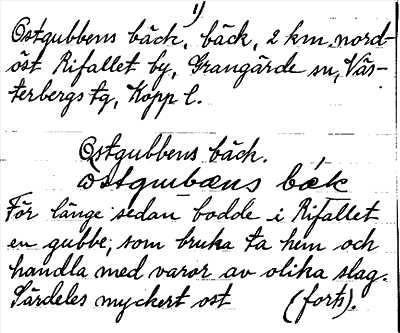 1)
Ostgubbens bäck, bäck, 2 km. nord-
öst Rifallet by, Grangärde sn, Väs-
terbergs tg, Kopp l.
Ostgubbens bäck.
För länge sedan bodde i Rifallet
en gubbe, som bruka ta hem och
handla med varor av olika slag.
Särdeles myckert ost (forts).